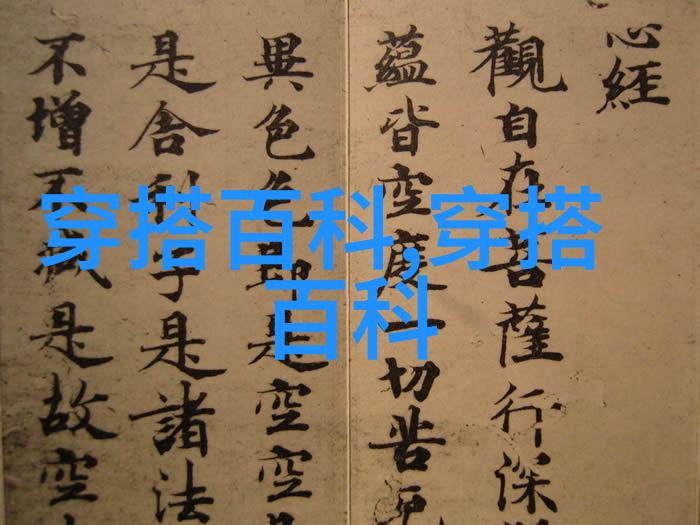 心經
觀自在菩薩行深
蘊皆空度一切苦厄
異色色即是空空
是舍利子是諸法
不增不減是故空
穿搭百科,穿搭
百科